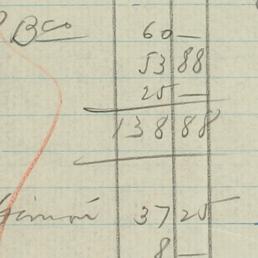 Bco 60 —
53 88
25 —
138 88
37 25
8 —